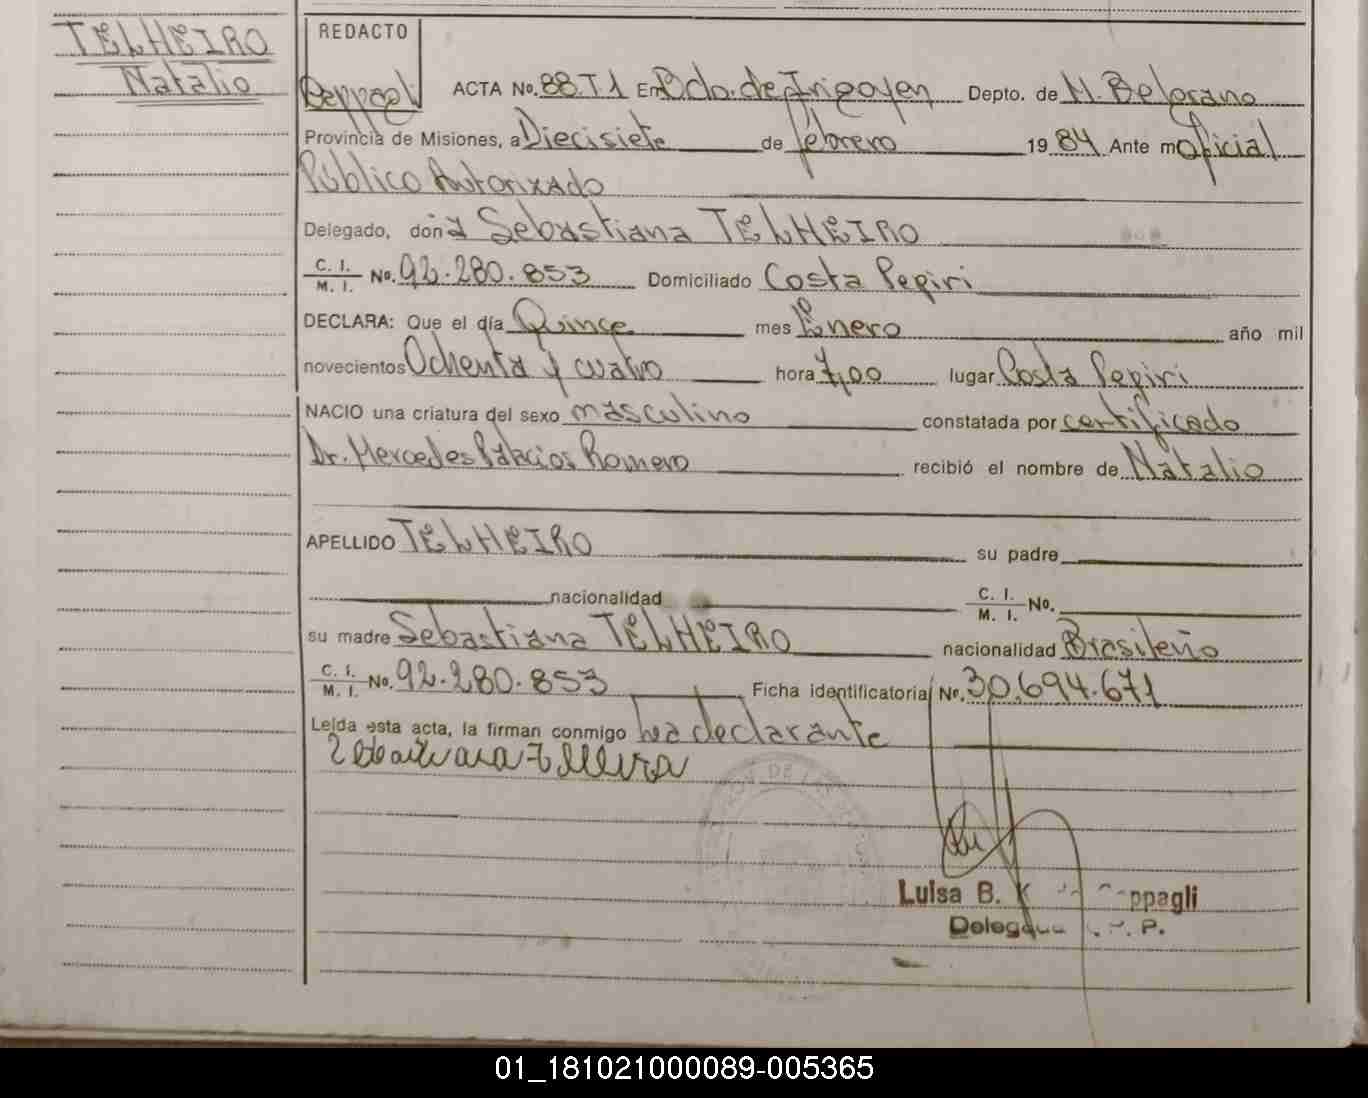 TELHEIRO
Natalio
REDACTO
ACTA No. 88.T1 En Bdo. de Irigoyen Depto. de M. Belgrano
Provincia de Misiones, a Diecisiete de febrero 1984 Ante mi Oficial
Público Autorizado
Delegado, doña Sebastiana TELHEIRO
C. I. M. I. No. 92.280.853 Domiciliado Costa Pepiri
DECLARA: Que el día Quince mes Enero año mil
novecientos Ochenta y cuatro hora 7,00 lugar Costa Pepiri
NACIO una criatura del sexo masculino constatada por certificado
Dr. Mercedes Palacios Romero recibió el nombre de Natalio
APELLIDO TELHEIRO su padre
nacionalidad C. I. M. I. No.
su madre Sebastiana TELHEIRO nacionalidad Brasileño
C. I. M. I. No. 92.280.853 Ficha identificatoria No. 30.694.671
Leída esta acta, la firman conmigo La declarante
Luisa B.
01_181021000089-005365